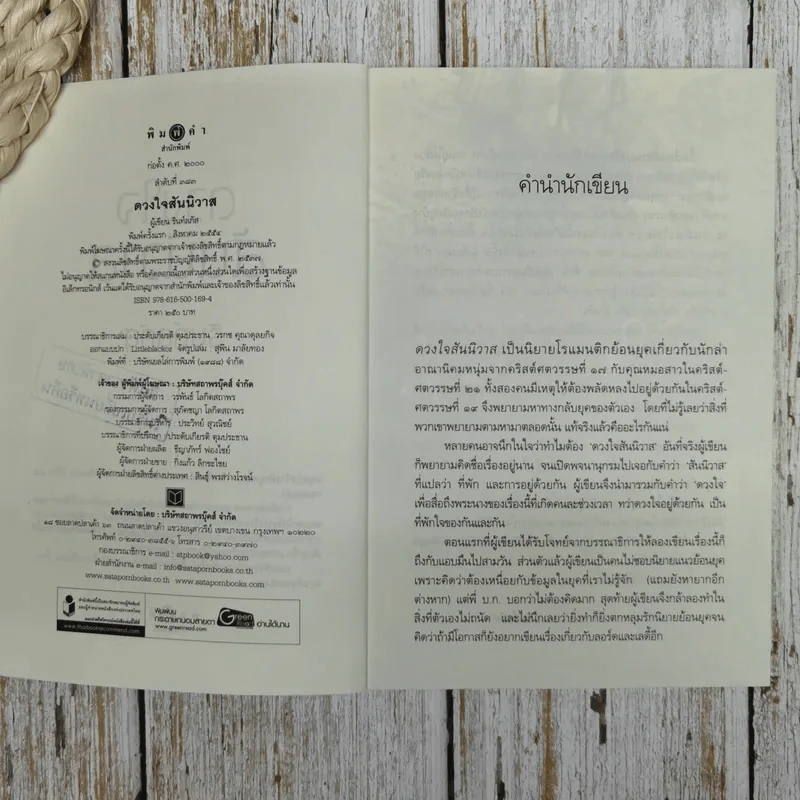 พิมพ์คำ
สำนักพิมพ์
ก่อตั้ง ค.ศ. ๒๐๐๐
ลำดับที่ ๓๘๓
ดวงใจสันนิวาส
ผู้เขียน รินท์ลภัส
พิมพ์ครั้งแรก : สิงหาคม ๒๕๕๔
พิมพ์โฆษณาครั้งนี้ได้รับอนุญาตจากเจ้าของลิขสิทธิ์ตามกฎหมายแล้ว
© สงวนลิขสิทธิ์ตามพระราชบัญญัติลิขสิทธิ์ พ.ศ. ๒๕๓๗
ไม่อนุญาตให้สแกนหนังสือ หรือคัดลอกเนื้อหาส่วนหนึ่งส่วนใดเพื่อสร้างฐานข้อมูล
อิเล็กทรอนิกส์ เว้นแต่ได้รับอนุญาตจากสำนักพิมพ์และเจ้าของลิขสิทธิ์แล้วเท่านั้น
ISBN 978-616-500-169-4
ราคา ๒๕๐ บาท
บรรณาธิการเล่ม : ประดับเกียรติ ตุมประธาน : วรกช คุณาดุลยกิจ
ออกแบบปก : Littleblackoz จัดรูปเล่ม : สุพิน มาลัยทอง
พิมพ์ที่ : บริษัทเยลโล่การพิมพ์ (๑๙๘๘) จำกัด
เจ้าของ ผู้พิมพ์ผู้โฆษณา : บริษัทสถาพรบุ๊คส์ จำกัด
กรรมการผู้จัดการ : วรพันธ์ โลกิตสถาพร
รองกรรมการผู้จัดการ : สุภัคชญา โลกิตสถาพร
บรรณาธิการบริหาร : ประวิทย์ สุวณิชย์
บรรณาธิการที่ปรึกษา : ประดับเกียรติ ตุมประธาน
ผู้จัดการฝ่ายผลิต : ธิญาภัทร์ ฟองไชย์
ผู้จัดการฝ่ายขาย : กิ่งแก้ว ลีกระโชย
ผู้จัดการฝ่ายลิขสิทธิ์ต่างประเทศ : สินธุ์ พรสว่างโรจน์
จัดจำหน่ายโดย : บริษัทสถาพรบุ๊คส์ จำกัด
๑๘ ซอยลาดปลาเค้า ๖๓ ถนนลาดปลาเค้า แขวงอนุสาวรีย์ เขตบางเขน กรุงเทพฯ ๑๐๒๒๐
โทรศัพท์ ๐-๒๙๔๐-๓๘๕๕-๖ โทรสาร ๐-๒๙๔๐-๓๙๗๐
กองบรรณาธิการ e-mail : stpbook@yahoo.com
ฝ่ายสำนักงาน e-mail : info@satapornbooks.co.th
www.satapornbooks.co.th, www.satapornbooks.com
www.thaibooksrecommend.com
พิมพ์บน
กระดาษถนอมสายตา
www.greenread.com
Green
อ่านได้นาน
คำนำนักเขียน
ดวงใจสันนิวาส เป็นนิยายโรแมนติกย้อนยุคเกี่ยวกับนักล่า
อาณานิคมหนุ่มจากคริสต์ศตวรรษที่ ๑๗ กับคุณหมอสาวในคริสต์-
ศตวรรษที่ ๒๑ ทั้งสองคนมีเหตุให้ต้องพลัดหลงไปอยู่ด้วยกันในคริสต์-
ศตวรรษที่ ๑๙ จึงพยายามหาทางกลับยุคของตัวเอง โดยที่ไม่รู้เลยว่าสิ่งที่
พวกเขาพยายามตามหามาตลอดนั้น แท้จริงแล้วคืออะไรกันแน่
หลายคนอาจนึกในใจว่าทำไมต้อง 'ดวงใจสันนิวาส' อันที่จริงผู้เขียน
ก็พยายามคิดชื่อเรื่องอยู่นาน จนเปิดพจนานุกรมไปเจอกับคำว่า 'สันนิวาส'
ที่แปลว่า ที่พัก และการอยู่ด้วยกัน ผู้เขียนจึงนำมารวมกับคำว่า 'ดวงใจ'
เพื่อสื่อถึงพระนางของเรื่องนี้ที่เกิดคนละช่วงเวลา ทว่าดวงใจอยู่ด้วยกัน เป็น
ที่พักใจของกันและกัน
ตอนแรกที่ผู้เขียนได้รับโจทย์จากบรรณาธิการให้ลองเขียนเรื่องนี้ก็
ถึงกับแอบมึนไปสามวัน ส่วนตัวแล้วผู้เขียนเป็นคนไม่ชอบนิยายแนวย้อนยุค
เพราะคิดว่าต้องเหนื่อยกับข้อมูลในยุคที่เราไม่รู้จัก (แถมยังหายากอีก
ต่างหาก) แต่พี่ บ.ก. บอกว่าไม่ต้องคิดมาก สุดท้ายผู้เขียนจึงกล้าลองทำใน
สิ่งที่ตัวเองไม่ถนัด และไม่นึกเลยว่ายิ่งทำก็ยิ่งตกหลุมรักนิยายย้อนยุคจน
คิดว่าถ้ามีโอกาสก็ยังอยากเขียนเรื่องเกี่ยวกับลอร์ดและเลดี้อีก